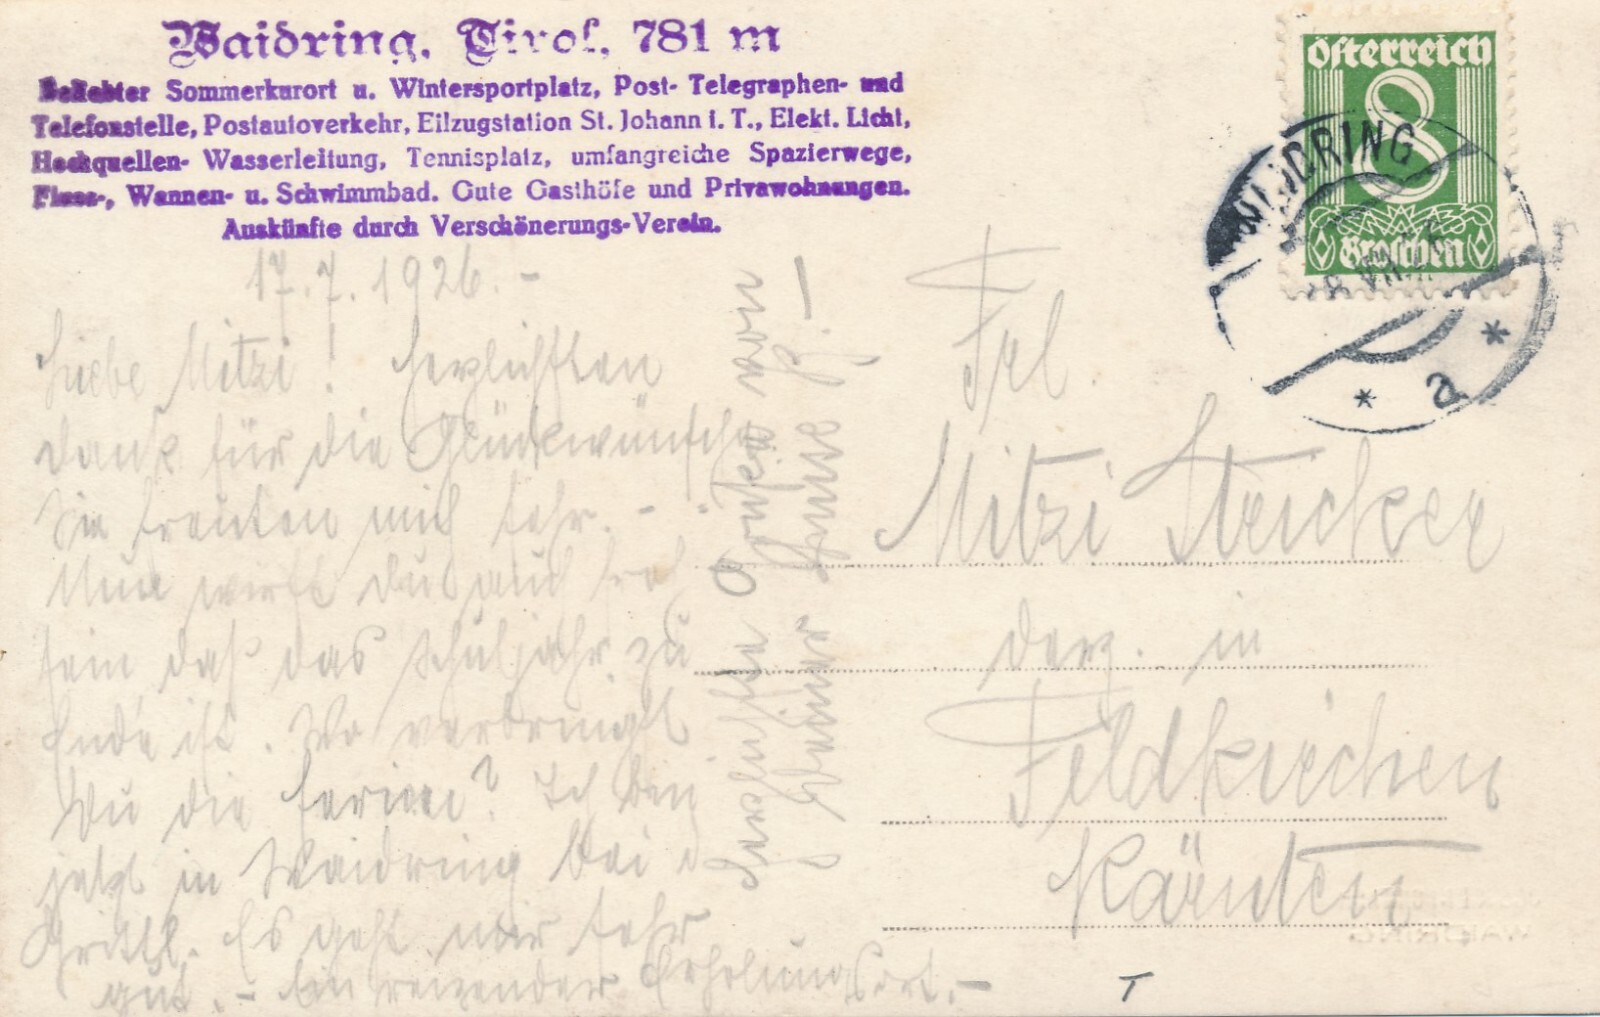 Waidring, Tirol, 781 m
Beliebter Sommerkurort u. Wintersportplatz, Post- Telegraphen- und
Telefonstelle, Postautoverkehr, Eilzugstation St. Johann i. T., Elekt. Licht,
Hochquellen- Wasserleitung, Tennisplatz, umfangreiche Spazierwege,
Fluss-, Wannen- u. Schwimmbad. Gute Gasthöfe und Privawohnungen.
Auskünfte durch Verschönerungs-Verein.
17.7.1926.-
Liebe Mitzi! Herzlichsten
Dank für die Glückwünsche
Sie freuten mich sehr. -
Nun wirst Du auch froh
sein, daß das Schuljahr zu
Ende ist. Wo verbringst
Du die Ferien? Ich bin
jetzt in Waidring bei d.
Gretl. Es geht mir sehr
gut. - Ein reizender Erholungsort. -
Herzlichste Grüße von
Deiner
Österreich
8
Groschen
WAIDRING
* a *
Frl.
Mitzi Steicker
derz. in
Feldkirchen
Kärnten
WAIDRING
T